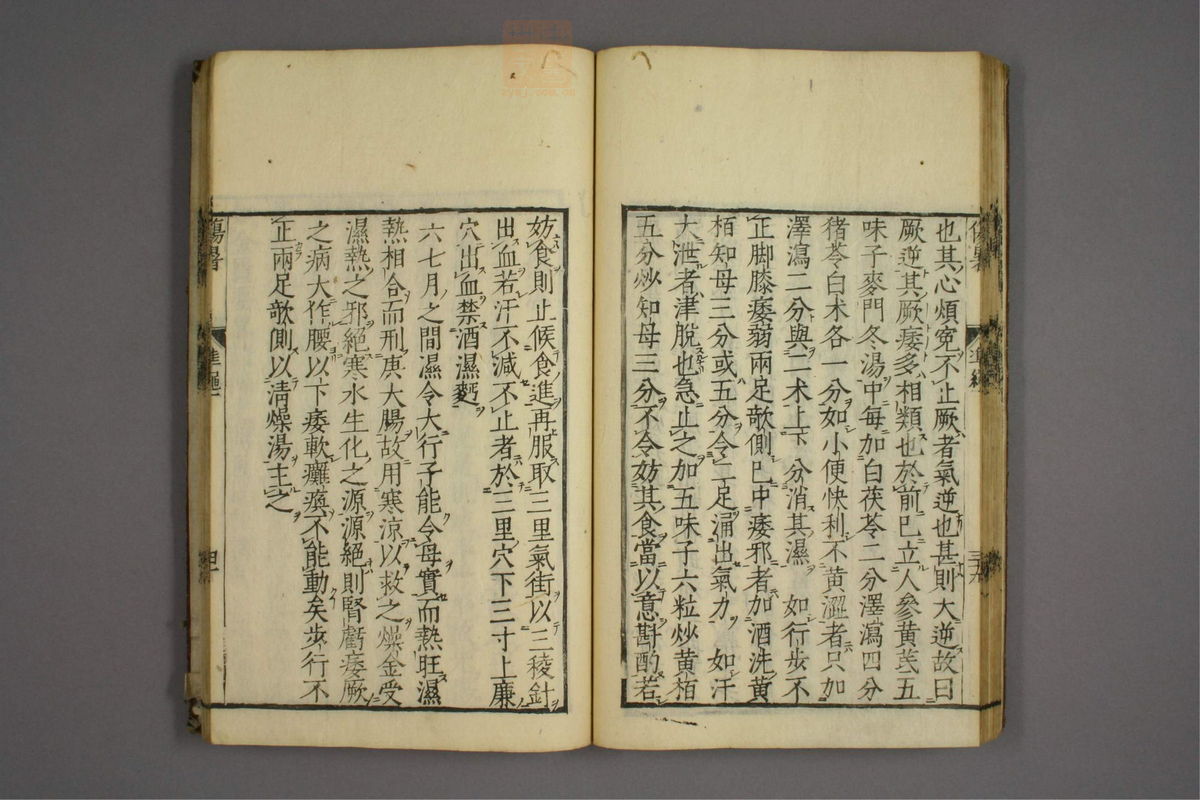 也其心煩寃不止厥者氣逆也甚則大逆故曰
厥逆其厥痿多相類也於前已立人參黃芪五
味子麥門冬湯中每加白茯苓二分澤瀉四分
猪苓白术各一分如小便快利不黃澀者只加
澤瀉二分與二术上下分消其濕 如行步不
正脚膝痿弱兩足欹側已中痿邪者加酒洗黃
栢知母三分或五分令二足涌出氣力 如汗
大泄者津脫也急止之加五味子六粒炒黃栢
五分炒知母三分不令妨其食當以意斟酌若
妨食則止候食進再服取三里氣街以三稜針
出血若汗不減不止者於三里穴下三寸上廉
穴出血禁酒濕麪
六七月之間濕令大行子能令母實而熱旺濕
熱相合而刑庚大腸故用寒涼以救之燥金受
濕熱之邪絕寒水生化之源源絕則腎虧痿厥
之病大作腰以下痿軟癱瘓不能動矣步行不
正兩足欹側以清燥湯主之
傷暑 準繩 四十